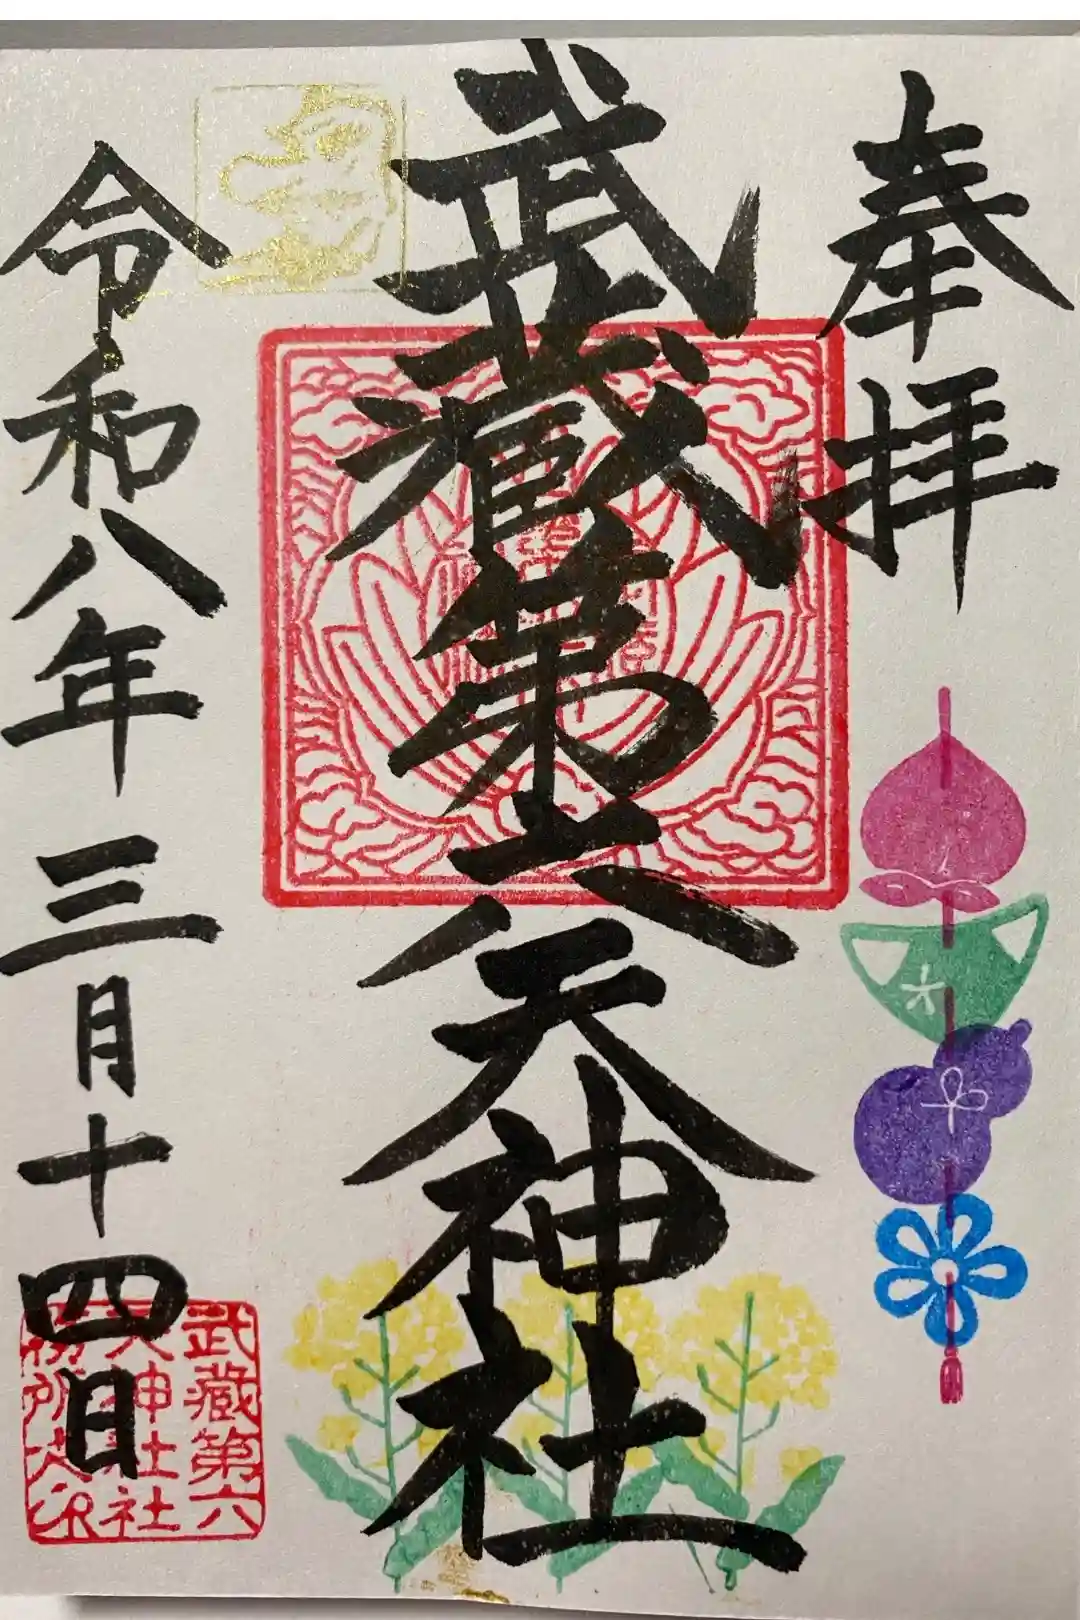 奉拝
武蔵第六天神社
令和八年三月十四日
六
武蔵第六
天神社社
務所之印